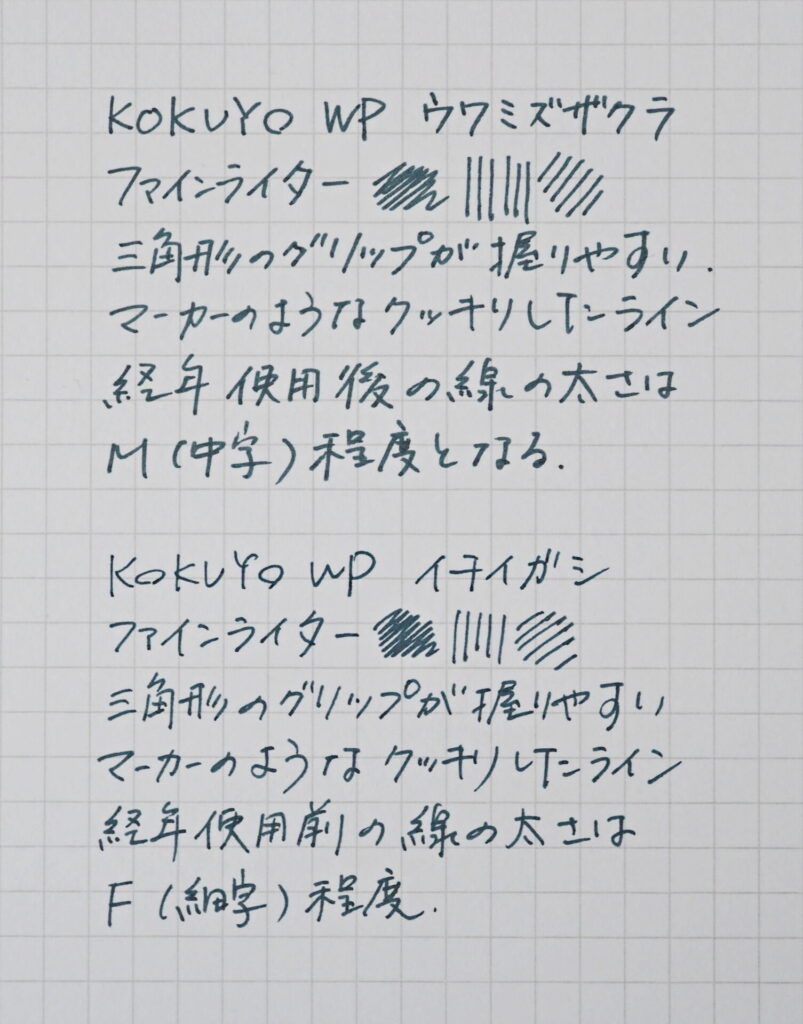 KOKUYO WP ウワミズザクラ
ファインライター
三角形のグリップが握りやすい.
マーカーのようなクッキリしたライン
経年使用後の線の太さは
M（中字）程度となる.
KOKUYO WP イチイガシ
ファインライター
三角形のグリップが握りやすい
マーカーのようなクッキリしたライン
経年使用前の線の太さは
F（細字）程度.